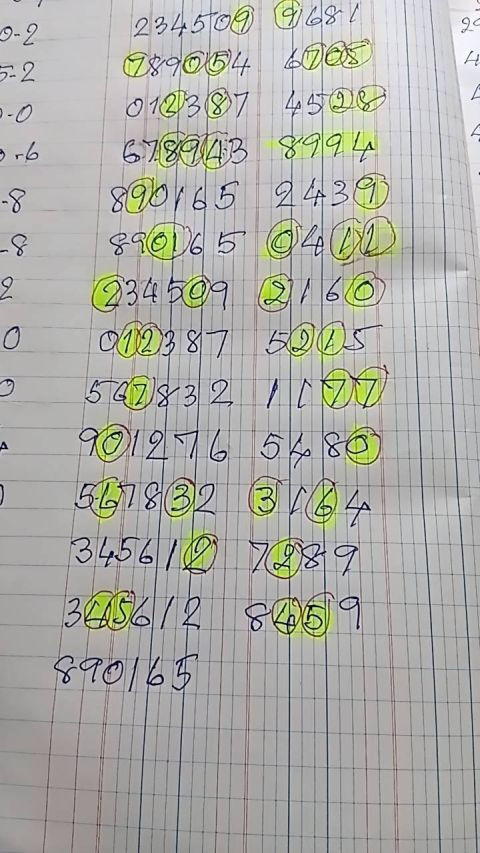 0-2 234509 9681
5-2 789054 6705
0-0 012387 4528
6 678943 8994
-8 890165 2439
-8 890165 0411
2 234509 2160
0 012387 5215
567832 1177
901276 5480
567832 3164
345612 7289
345612 8459
890165